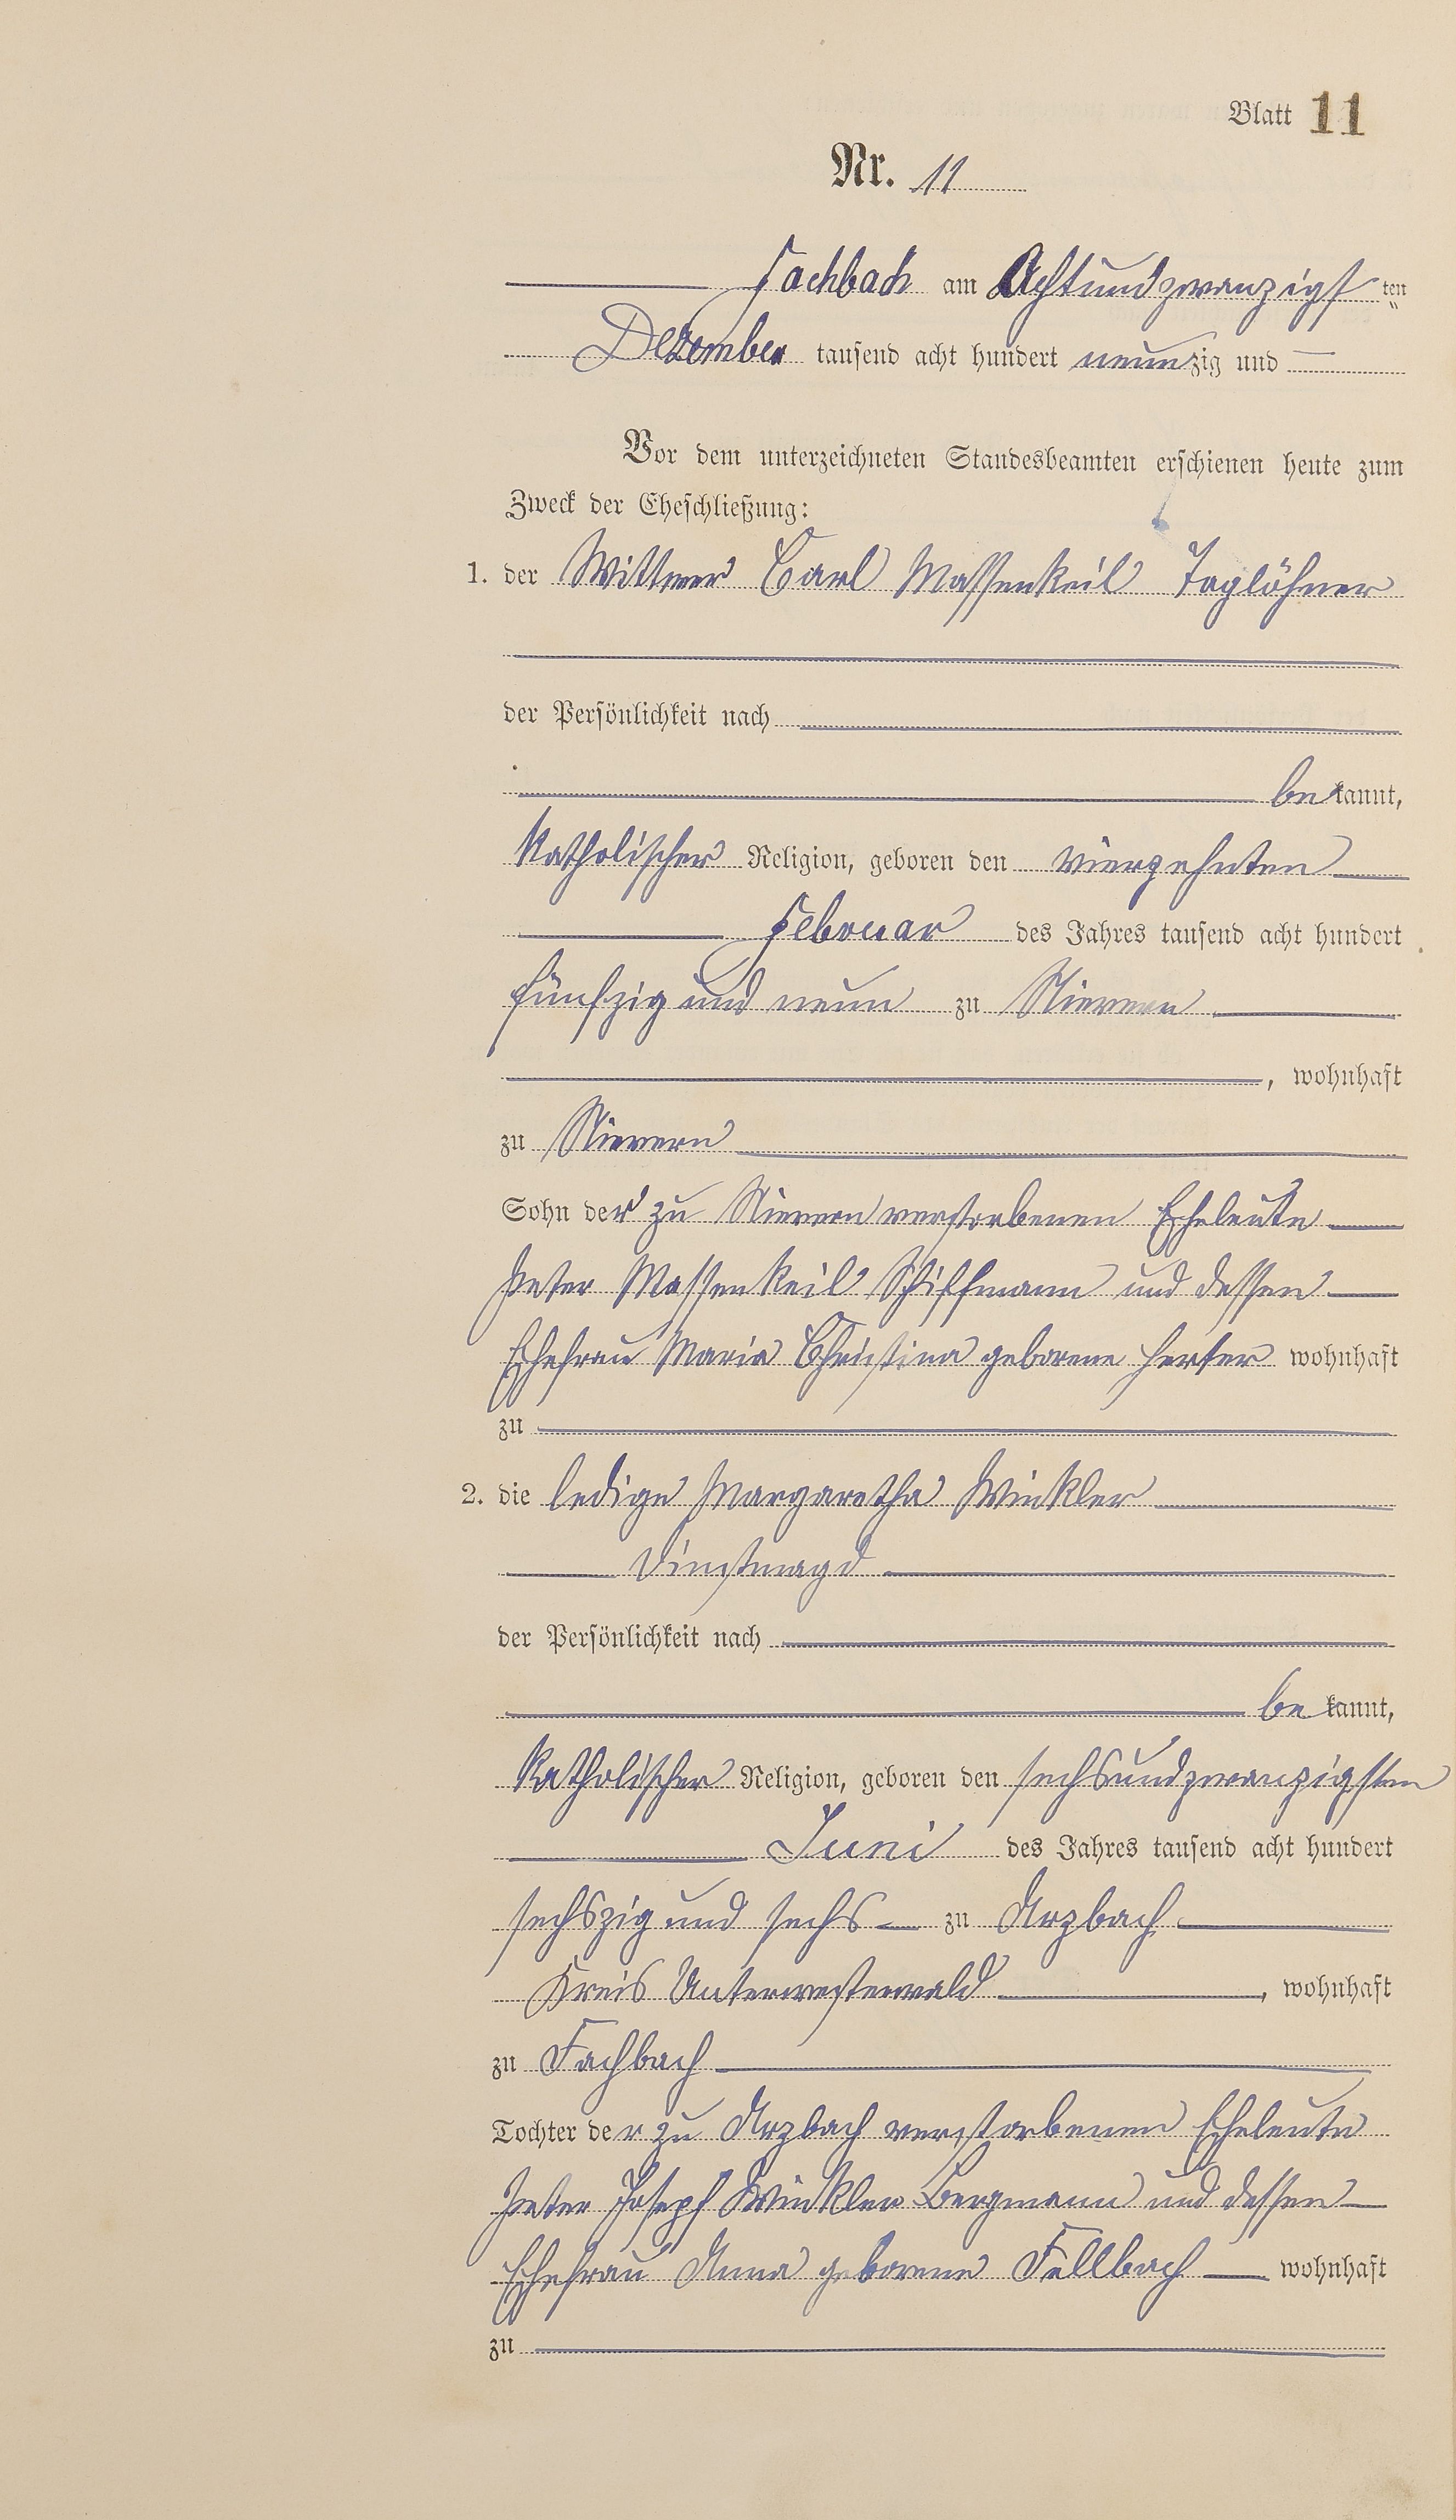 Blatt 11
Nr. 11
Fachbach am Achtundzwanzigsten
Dezember tausend acht hundert neunzig und
Vor dem unterzeichneten Standesbeamten erschienen heute zum
Zweck der Eheschließung:
1. der Wittwer Carl Massenkeil Taglöhner
der Persönlichkeit nach
bekannt,
katholischer Religion, geboren den vierzehnten
Februar des Jahres tausend acht hundert
fünfzig und neun zu Nievern
, wohnhaft
zu Nievern
Sohn der zu Nievern verstorbenen Eheleute
Peter Massenkeil Schiffmann und dessen
Ehefrau Maria Christina geborene wohnhaft
zu
2. die ledige Margaretha Winkler
Dienstmagd
der Persönlichkeit nach
bekannt,
katholischer Religion, geboren den sechsundzwanzigsten
Juni des Jahres tausend acht hundert
sechszig und sechs zu Arzbach
Kreis Unterwesterwald, wohnhaft
zu Fachbach
Tochter der zu Arzbach verstorbenen Eheleute
Peter Joseph Winkler Bergmann und dessen
Ehefrau Anna geborene Fellbach wohnhaft
zu